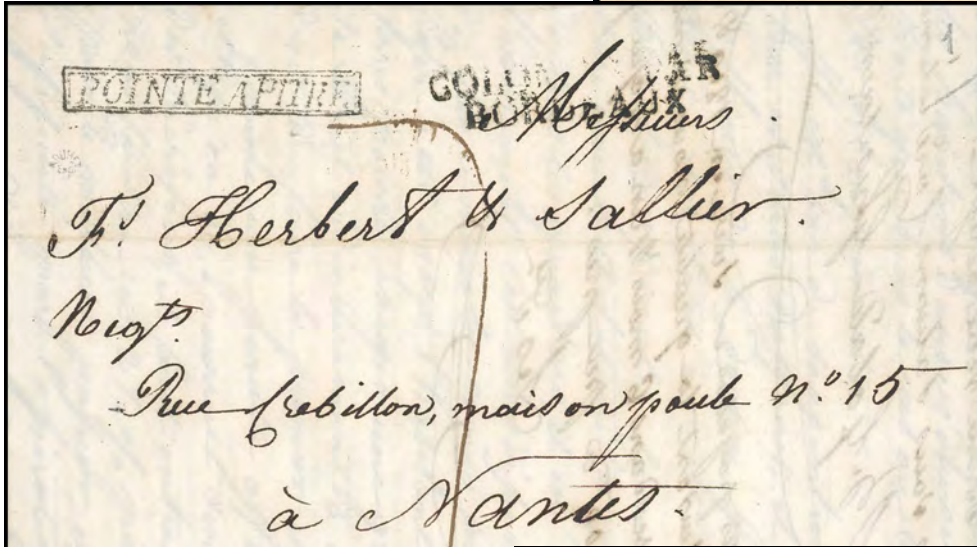 1
POINTE APITRE
COLONIES PAR
BORDEAUX
Messieurs
Fs. Herbert & Sallier.
Negts.
Rue Crebillon, maison paule N.o 15
à Nantes.